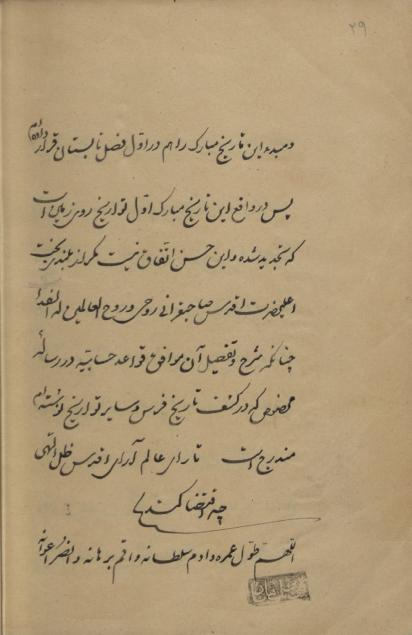 ۲۹
ومبدء این تاریخ مبارک را هم در اول فصل تابستان قرار داده‌ام
پس در واقع این تاریخ مبارک اول تواریخ روی زمین است
که تجدید شده و این حسن اتفاق نیست مگر از بلندی بخت
اعلیحضرت اقدس صاحبقرانی روحی و روح العالمین له الفداء
چنانکه شرح و تفصیل آن موافق قواعد حسابیه در رساله
مخصوص که در کشف تاریخ فرس و سایر تواریخ نوشته‌ام
مندرج است تا رای عالم آرای اقدس ظل اللهی
چه اقتضا کند
اللهم طول عمره و ادم سلطانه و اقم برهانه و انصر اعوانه